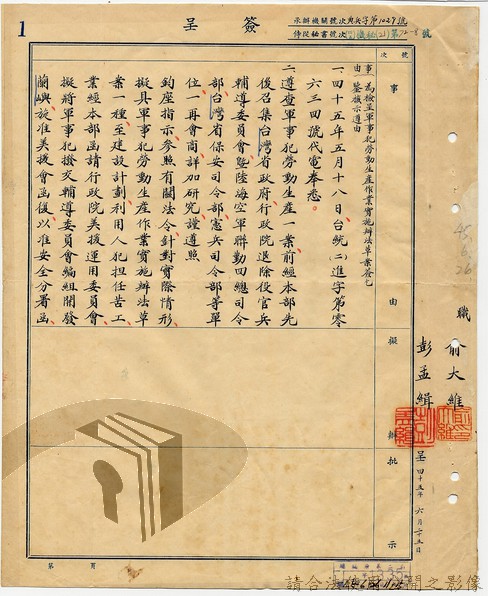 簽呈
1
承辦機關號次典兵子第1029號
侍從秘書號次
號
次號
事由
擬辦
批示
事由:為檢呈軍事犯勞動生產作業實施辦法草案簽乞鑒核示遵由
一、四十五年五月十八日台統(二)進字第零
六三四號代電奉悉。
二、遵查軍事犯勞動生產一案前經本部先
後召集台灣省政府行政院退除役官兵
輔導委員會暨陸海空軍聯勤四總司令
部台灣省保安司令部憲兵司令部等單
位一再會商詳加研究謹遵照
鈞座指示參照有關法令針對實際情形
擬具軍事犯勞動生產作業實施辦法草
案一種至建設計劃利用人犯担任苦工
業經本部函請行政院美援運用委員會
擬將軍事犯撥交輔導委員會編組開發
蘭嶼旋准美援會函復以准安全分署函
職
俞大維
彭孟緝
呈
四十五年六月十五日
第 頁
請合法使用公開之影像